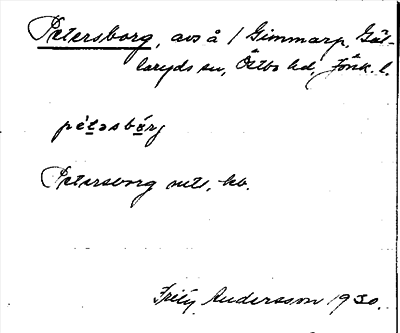 Petersborg, avs å / Gimmarp, Gäl-
laryds sn, Östbo hd, Jönk. l.
pè̀təsbárj
Petersborg
Fritz Andersson 1930.